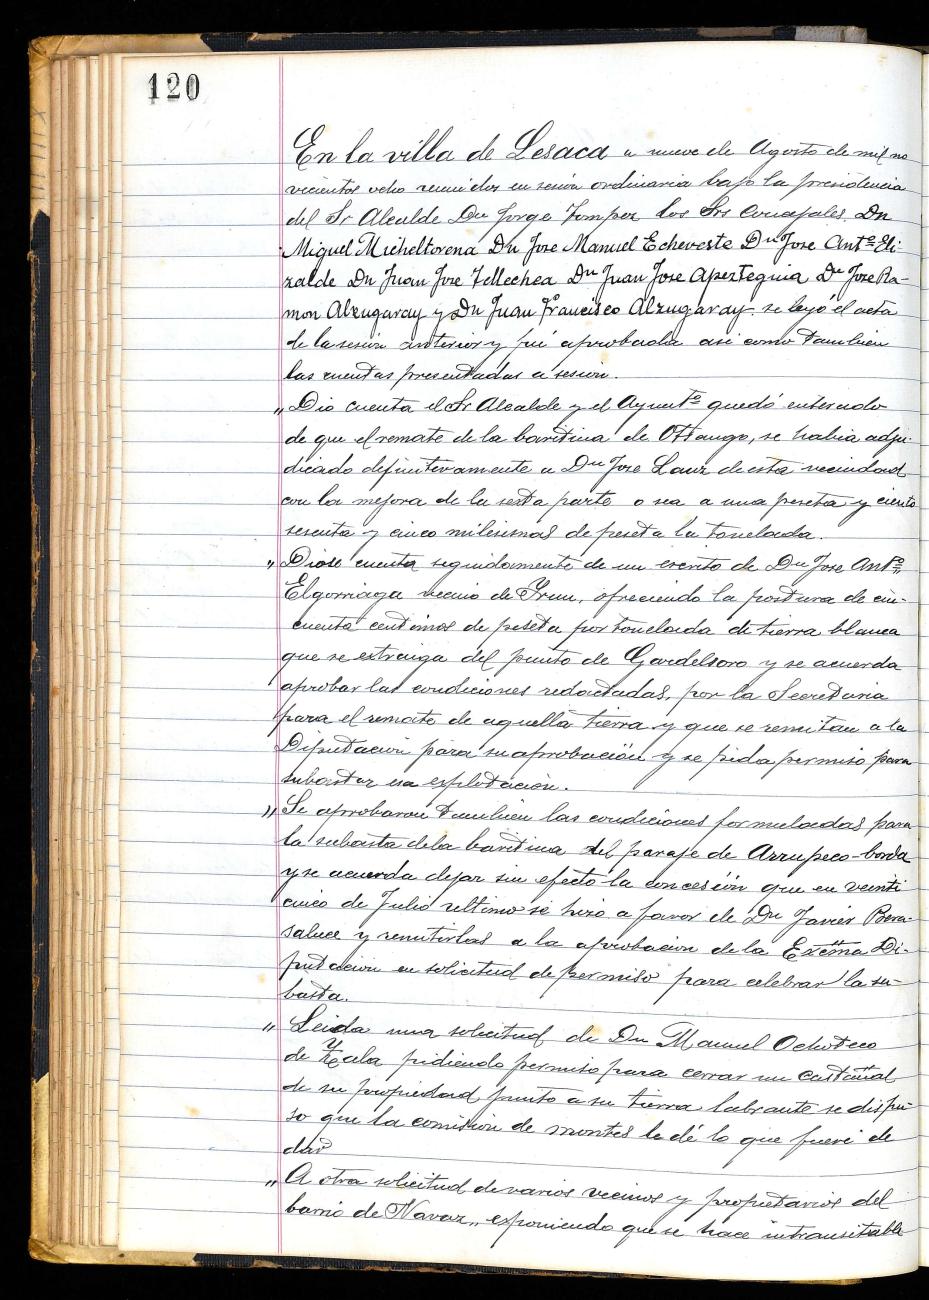 120
En la villa de Lesaca a nueve de Agosto de mil no
vecientos ocho reunidos en sesión ordinaria bajo la presidencia
del Sr Alcalde Dn Jorge Tompes los Srs Concejales Dn
Miguel Micheltorena Dn Jose Manuel Echeveste Dn Jose Antº Eli-
zalde Dn Juan Jose Tellechea Dn Juan Jose Apezteguia Dn Jose Ra-
mon Alzugaray y Dn Juan Francisco Alzugaray. se leyó el acta
de la sesion anterior y fué aprobada asi como tambien
las cuentas presentadas a sesion.
„ Dio cuenta el Sr Alcalde y el Ayuntº quedó enterado
de que el remate de la baritina de Ottango, se habia adju-
dicado definitivamente a Dn Jose Sanz de esta vecindad
con la mejora de la sesta parte o sea a una peseta y ciento
sesenta y cinco milesimas de peseta la tonelada.
„ Diose cuenta seguidamente de un escrito de Dn Jose Antº
Elgorriaga vecino de Yrun, ofreciendo la postura de cin-
cuenta centimos de peseta por tonelada de tierra blanca
que se extraiga del punto de Gardelsoro y se acuerda
aprobar las condiciones redactadas, por la Secretaria
para el remate de aquella tierra y que se remitan a la
Diputacion para su aprobación y se pida permiso para
subastar esa esplotación.
„ Se aprobaron tambien las condiciones formuladas para
la subasta de la baritina del paraje de Arrupeco-borda
y se acuerda dejar sin efecto la concesión que en veinti
cinco de Julio ultimo se hizo a favor de Dn Javier Bera-
saluce y remitirlas a la aprobacion de la Exctma Di-
putacion en solicitud de permiso para celebrar la su-
basta.
„ Leida una solicitud de Dn Manuel Ochoteco
de Yzala pidiendo permiso para cerrar un castañal
de su propiedad junto a su tierra labrante se dispu-
so que la comision de montes le dé lo que fuere de
dar
„ A otra solicitud de varios vecinos y propietarios del
barrio de Navaz„ esponiendo que se hace intransitable